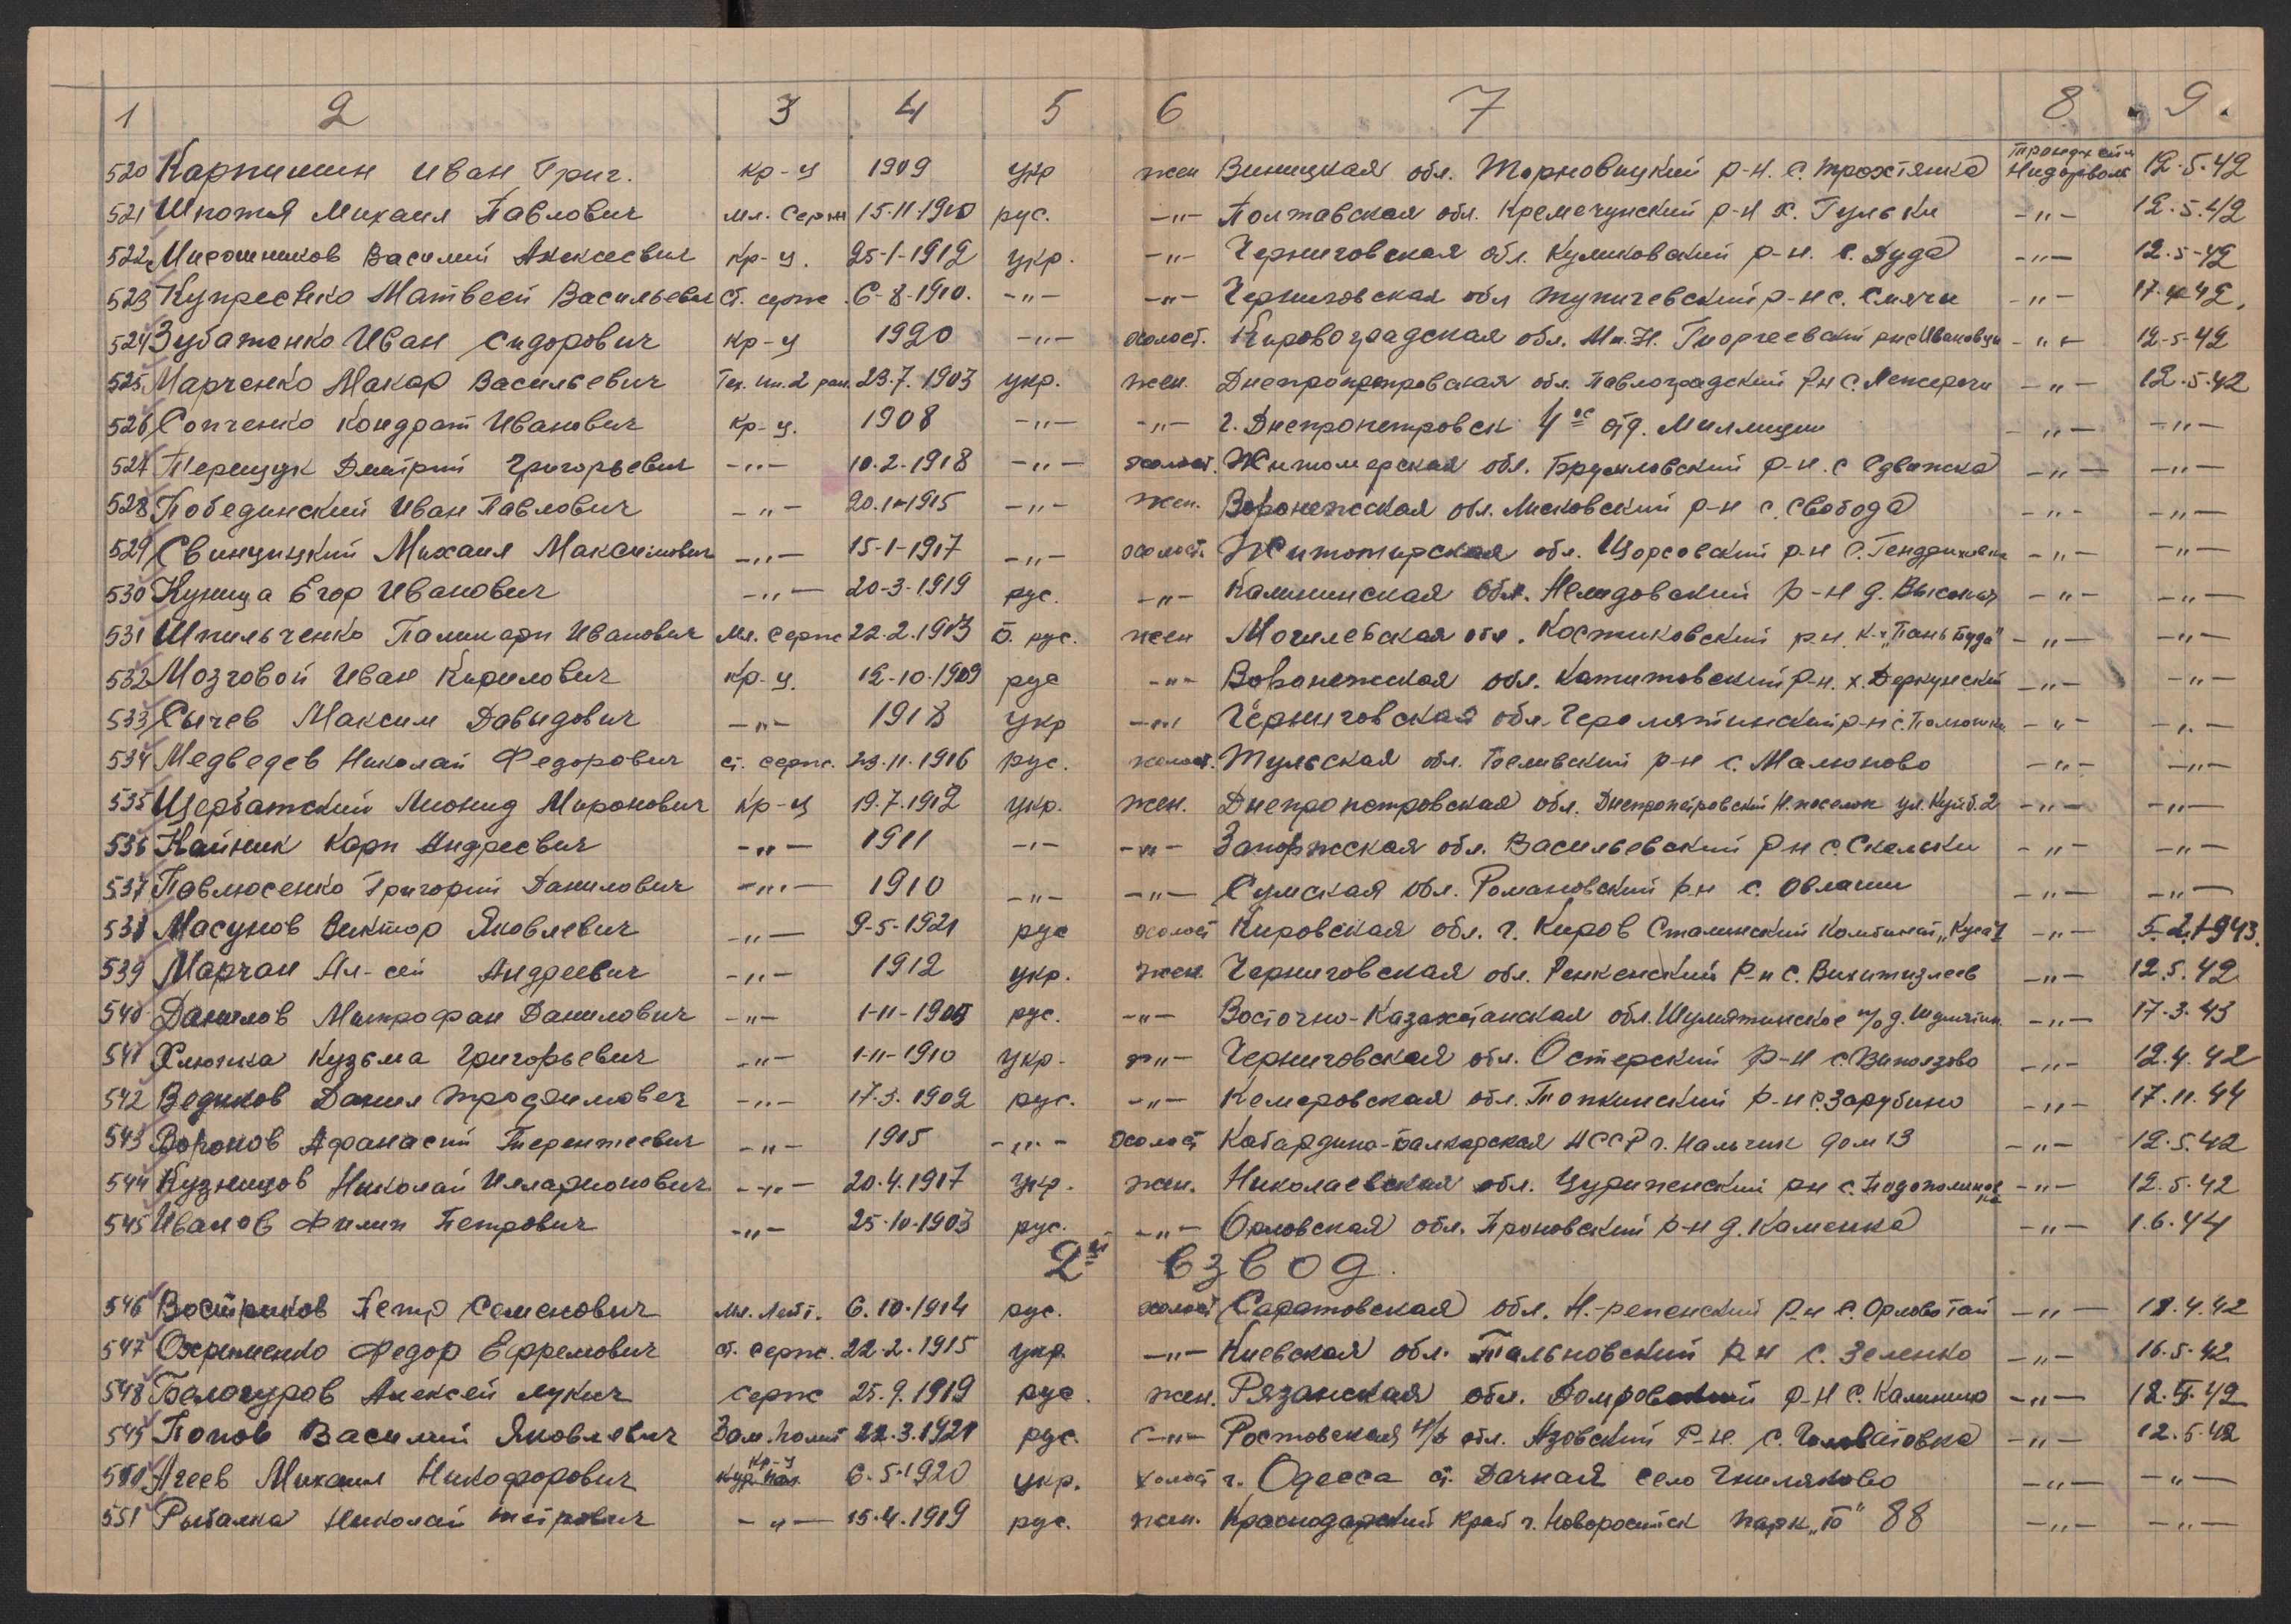 1 2 3 4 5 6 7 8 9.
520 Карпишин Иван Григ. кр-ц 1909 укр жен Виницкая обл. Торновицкий р-н. с. Тростянка Нидарволь 12.5.42
521 Шпотя Михаил Павлович мл. серж 15.11.1910 рус. -"- Полтавская обл. Кремечунский р-н х. Гульки -"- 12.5.42
522 Мирошников Василий Алексеевич кр-ц. 25-1-1912 укр. -"- Черниговская обл. Куликовский р-н. с. Дуда -"- 12.5-42
523 Купреенко Матвеей Васильевич ст. серж. 6-8-1910. -"- -"- Черниговская обл Тупичевский р-н с. Смячи -"- 17.4.42.
524 Зубатенко Иван Сидорович кр-ц 1920 -"- холост. Кировоградская обл. Ми.Н. Георгеевский рн с Ивановци -"- 12-5-42
525 Марченко Макар Васильевич Тех. ин. 2 ран. 23.7.1903 укр. жен. Днепропетровская обл. Павлоградский р-н с. Межеречи -"- 12.5.42
526 Сопченко Кондрат Иванович кр-ц. 1908 -"- -"- г. Днепропетровск 4ое отд. Миллиции -"- -"-
527 Терещук Дмитрий Григорьевич -"- 10.2-1918 -"- холост. Житомерская обл. Брусиловский р-н. с Сдвижка -"- -"-
528 Побединский Иван Павлович -"- 20.1-1915 -"- жен. Воронежская обл. Лисковский р-н с. Свобода -"- -"-
529 Свинцицкий Михаил Максимович -"- 15-1-1917 -"- холост. Житомирская обл. Щорсовский р-н с. Гендриховка -"- -"-
530 Куница Егор Иванович -"- 20-3-1919 рус. -"- Калининская обл. Нелидовский р-н д. Высокая -"- -"-
531 Шпильченко Палинарп Иванович мл. серж 22.2.1913 б. рус. жен Могилевская обл. Костиковский р-н. к-з „Пань Буда" -"- -"-
532 Мозговой Иван Кирилович кр-ц. 12-10-1909 рус -"- Воронежская обл. Катитовский р-н. х. Деркунский -"- -"-
533 Сычев Максим Давыдович -"- 1918 укр -"- Черниговская обл. р-н с. -"- -"-
534 Медведев Николай Федорович ст. серж. 23.11.1916 рус. холост. Тульская обл. Белевский р-н с. Малюново -"- -"-
535 Щербатский Лионид Миронович кр-ц 19.7.1912 укр. жен. Днепропетровская обл. Днепропетровский Н. поселок ул. Куйб. 2 -"- -"-
536 Найник Карп Андреевич -"- 1911 -"- -"- Запоржская обл. Васильевский р-н с. Скельки -"- -"-
537 Павлюсенко Григорий Данилович -"- 1910 -"- -"- Сумская обл. Романовский р-н с. Овлаши -"- -"-
538 Масунов Виктор Яковлевич -"- 9-5-1921 рус холост Кировская обл. г. Киров Сталинский Комбинат -"- 5.2.1943.
539 Марчан Ал-сей Андреевич -"- 1912 укр. жен. Черниговская обл. р-н с. -"- 12.5.42
540 Данилов Митрофан Данилович -"- 1-11-1905 рус. -"- Восточно-Казахстанская обл. -"- 17.3.43
541 Хлюпка Кузьма Григорьевич -"- 1-11-1910 укр. -"- Черниговская обл. Остерский р-н с. Виползово -"- 12.4.42
542 Ведиков Данил Трофимовеч -"- 17.3.1902 рус. -"- Кемеровская обл. Топкинский р-н с. Зарубино -"- 17.11.44
543 Воронов Афанасий Терентеевич -"- 1915 -"- холост Кабардино-Балкарская АССР г. Нальчик дом 13 -"- 12.5.42
544 Кузнецов Николай Илларионович -"- 20.4.1917 укр. жен. Николаевская обл. Цурюпенский р-н с. -"- 12.5.42
545 Иванов Филип Петрович -"- 25-10-1903 рус. -"- Орловская обл. Проновский р-н д. Каменка -"- 1.6.44
2й взвод.
546 Востриков Петр Семенович мл. лейт. 6.10.1914 рус. холост Саратовская обл. Н.-репенский р-н с. Орлово Гай -"- 18.4.42
547 Охрименко Федор Ефремович ст. серж. 22.2.1915 укр. -"- Киевская обл. Тальновский р-н с. Зеленко -"- 16.5.42
548 Белогуров Алексей Лукич серж 25.9.1919 рус. жен. Рязанская обл. р-н с. Калинино -"- 12.5.42
549 Попов Василий Яковлевич Зам. полит 22.3.1921 рус. -"- Ростовская н/д обл. Азовский р-н. с. Головатовка -"- 12.5.42
550 Агеев Михаил Никофорович кр-ц 6.5.1920 укр. холост г. Одесса ст. Дачная село Гниляково -"- -"-
551 Рыбалка Николай Петрович -"- 15.4.1919 рус. жен. Краснодарский край г. Новоросийск парк „Б" 88 -"- -"-